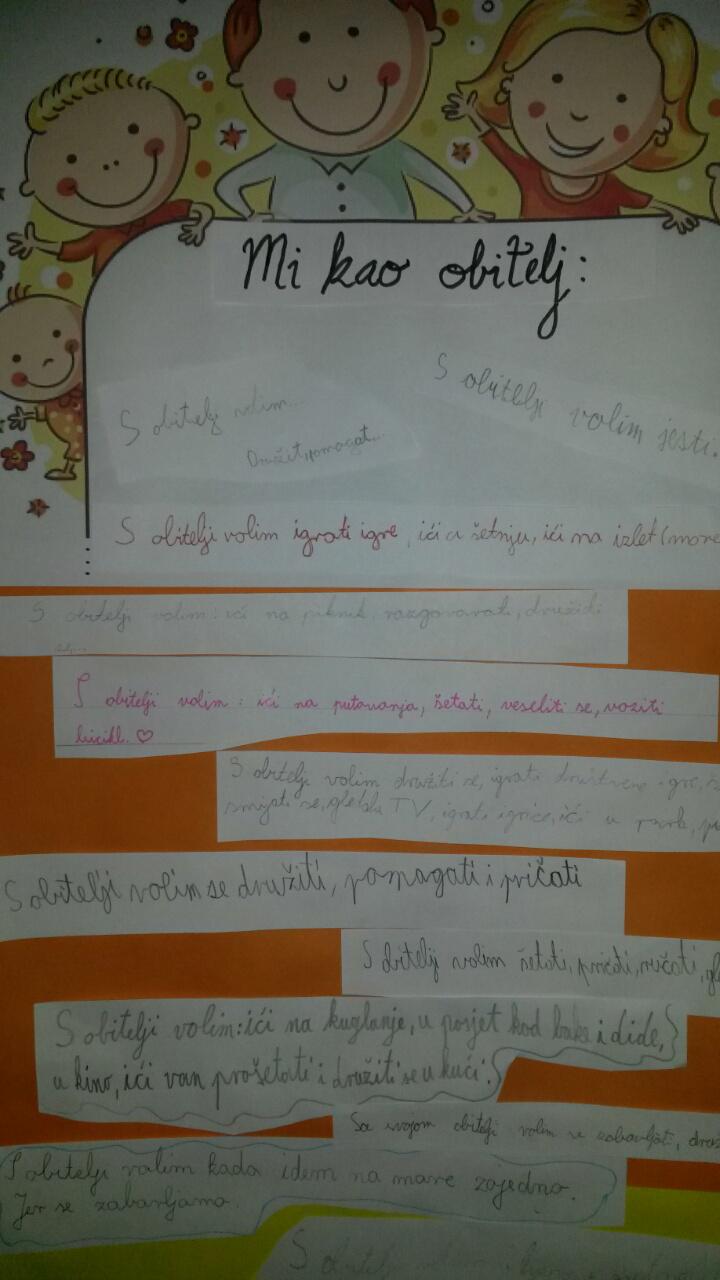 Mi kao obitelj:
S obitelji volim...
Družit, pomagat...
S obitelji volim jesti.
S obitelji volim igrati igre, ići u šetnju, ići na izlet (more
S obitelji volim: ići na piknik, razgovarati, družiti
S obitelji volim: ići na putovanja, šetati, veseliti se, voziti
bicikl. ♡
S obitelji volim družiti se, igrati društvene igre,
smijati se, gledati TV, igrati igrice, ići u park,
S obitelji volim se družiti, pomagati i pričati
S obitelji volim šetati, pričati, ručati,
S obitelji volim: ići na kuglanje, u posjet kod bake i dide,
u kino, ići van prošetati i družiti se u kući.
Sa svojom obitelji volim se zabavljati,
S obitelji volim kada idem na more zajedno.
Jer se zabavljamo.
S obitelji volim